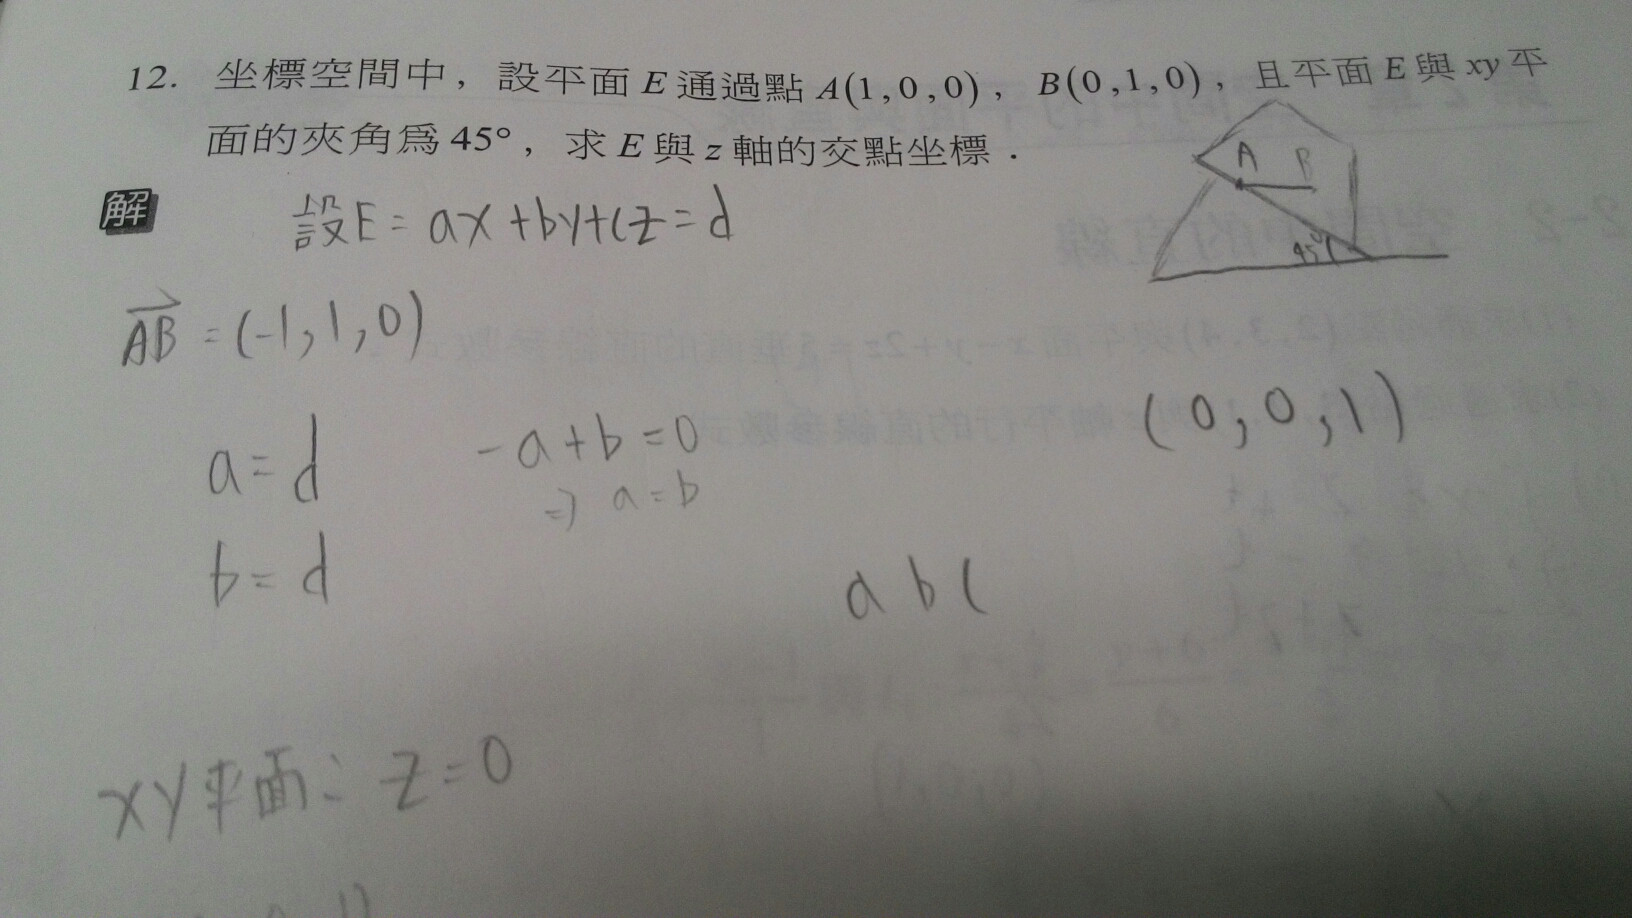 12. 坐標空間中，設平面 E 通過點 A(1,0,0)，B(0,1,0)，且平面 E 與 xy 平
面的夾角為 45°，求 E 與 z 軸的交點坐標．
A B
45°
解 設E = ax+by+cz=d
AB = (-1,1,0)
(0,0,1)
a=d -a+b=0
⇒ a=b
b=d
a b c
xy平面：z=0